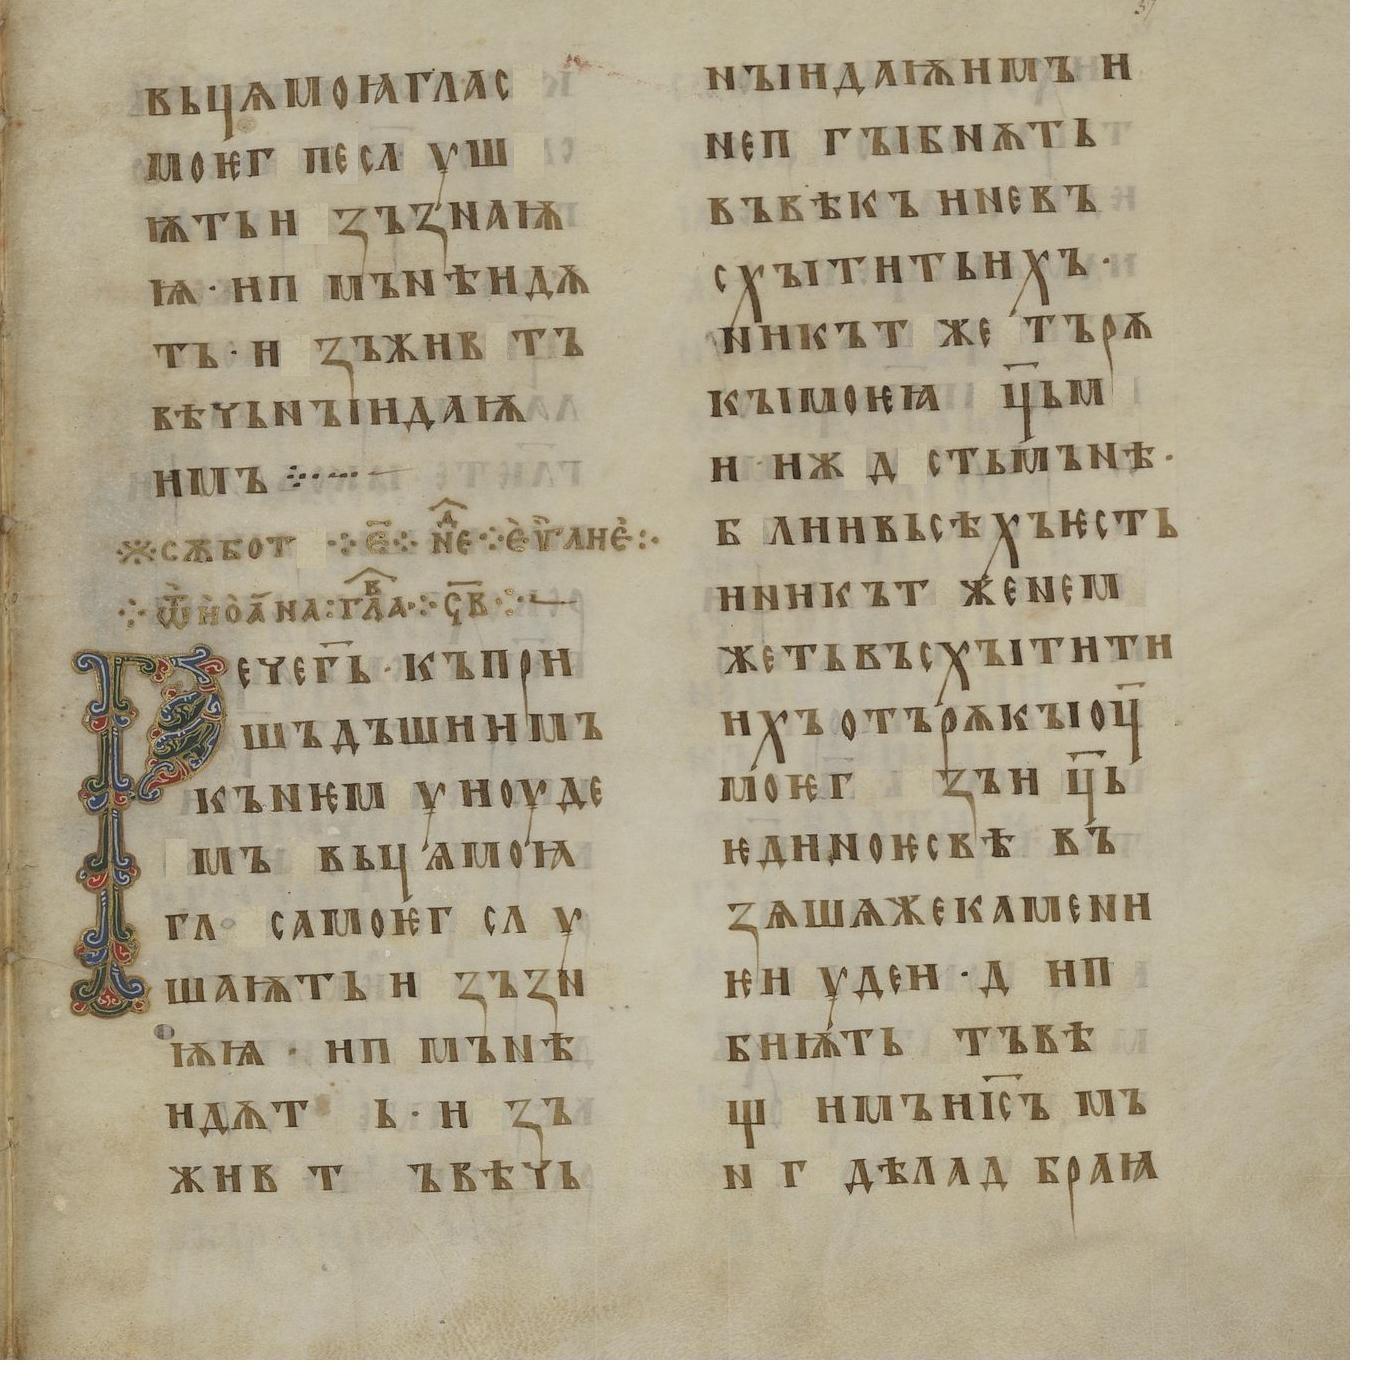 вьцѧмоꙗглас
моѥг песл уш
ѭтьи ꙁъꙁнаѭ
ѩ · ип мънѣидѫ
тъ · и ꙁъжив тъ
вѣчьнъіидаѭ
имъ
сѫбот е҃ не҃ д еѵ҃глие
ѿ иоана гл҃а в ѕ҃в
Рече г҃ь · къпри
шъдъшиимъ
кънѥм у иоуде
мъ вьцѧмоꙗ
гл самоѥг сл у
шаѭтьи ꙁъꙁн
ѭѩ · ип мънѣ
идѫт ь · и ꙁъ
жив т ъвѣчь
нъіидаѭимъ и
неп гъібнѫть
въвѣкъ иневъ
схъітитьихъ ·
никът же тъ рѫ
къімоѥꙗ ц҃ьм
и иж д стьмънѣ ·
б лиивьсѣхъѥсть
иникът женем
жетьвъсхъітити
ихъотърѫкъіоц҃
моѥг ꙁъи ц҃ь
ѥдиноѥсвѣ въ
ꙁѧшѧжекамени
ѥи удеи · д ип
биѭть тъвѣ
щ имъиі҃съ мъ
н г дѣлад браꙗ